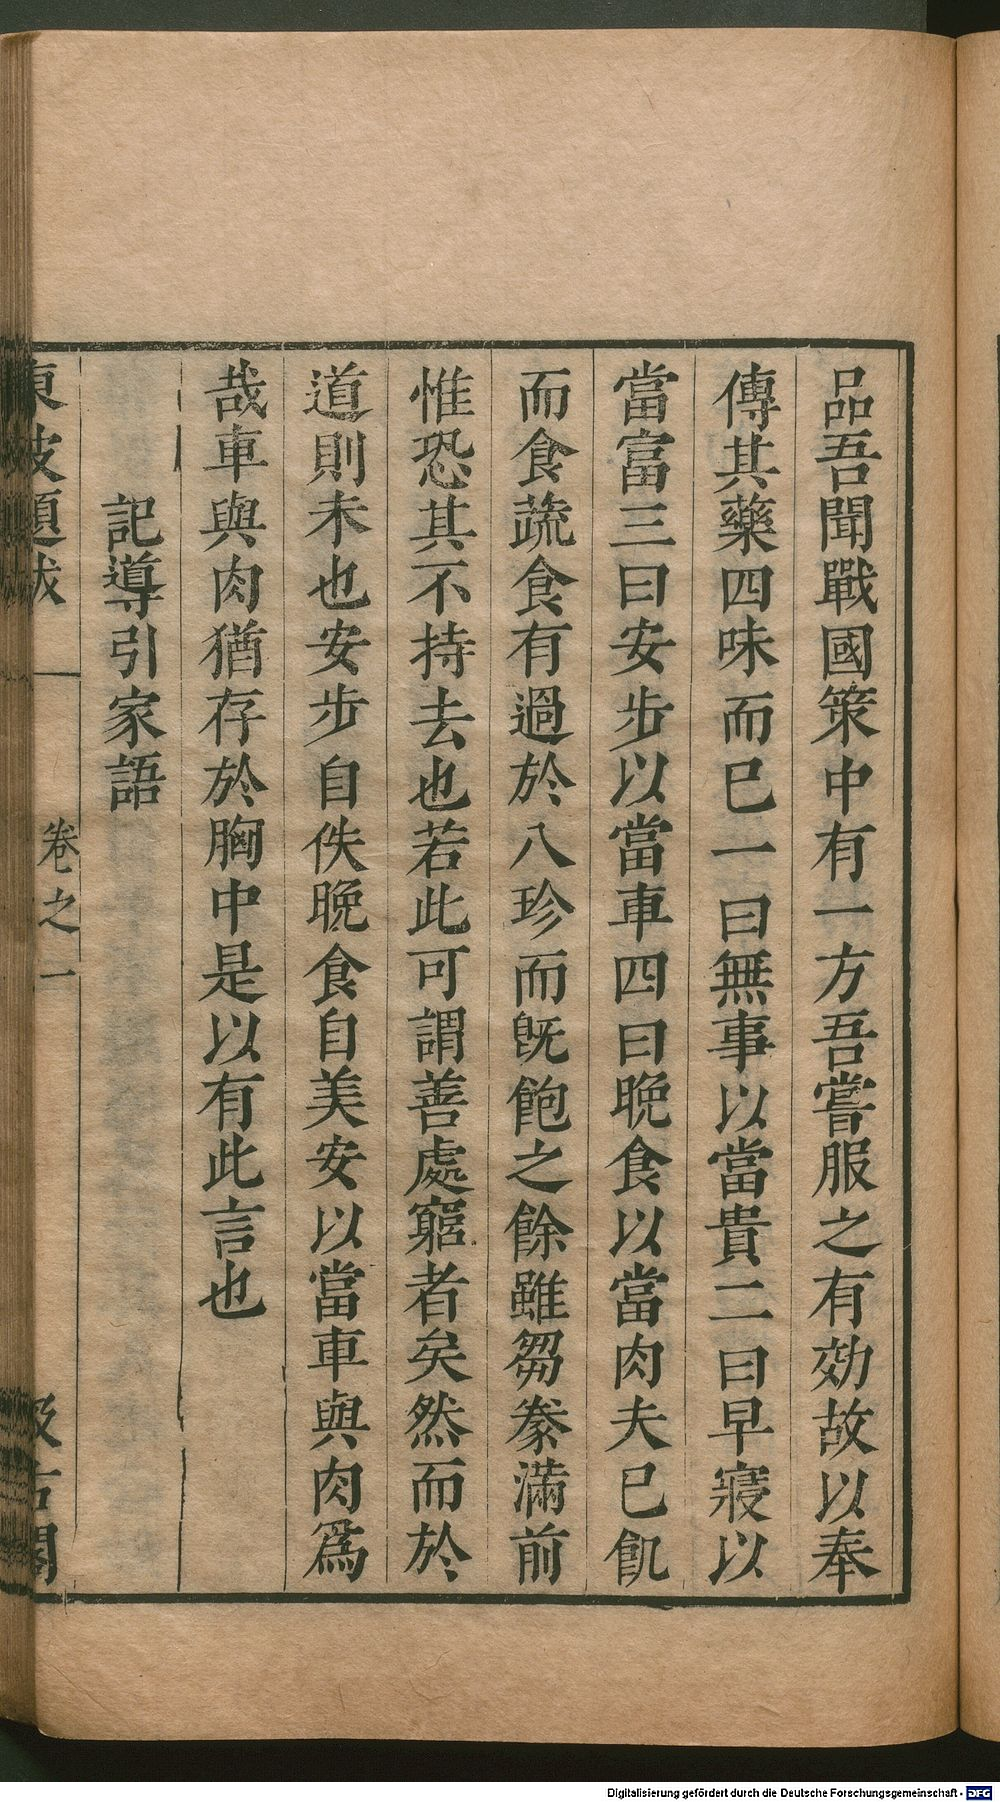 品吾聞戰國策中有一方吾嘗服之有効故以奉
傳其藥四味而巳一曰無事以當貴二曰早寢以
當富三曰安步以當車四曰晚食以當肉夫巳飢
而食蔬食有過於八珍而旣飽之餘雖芻豢滿前
惟恐其不持去也若此可謂善處窮者矣然而於
道則未也安步自佚晚食自美安以當車與肉爲
哉車與肉猶存於胸中是以有此言也
記導引家語
東坡題跋
卷之一
汲古閣
Digitalisierung gefördert durch die Deutsche Forschungsgemeinschaft - DFG